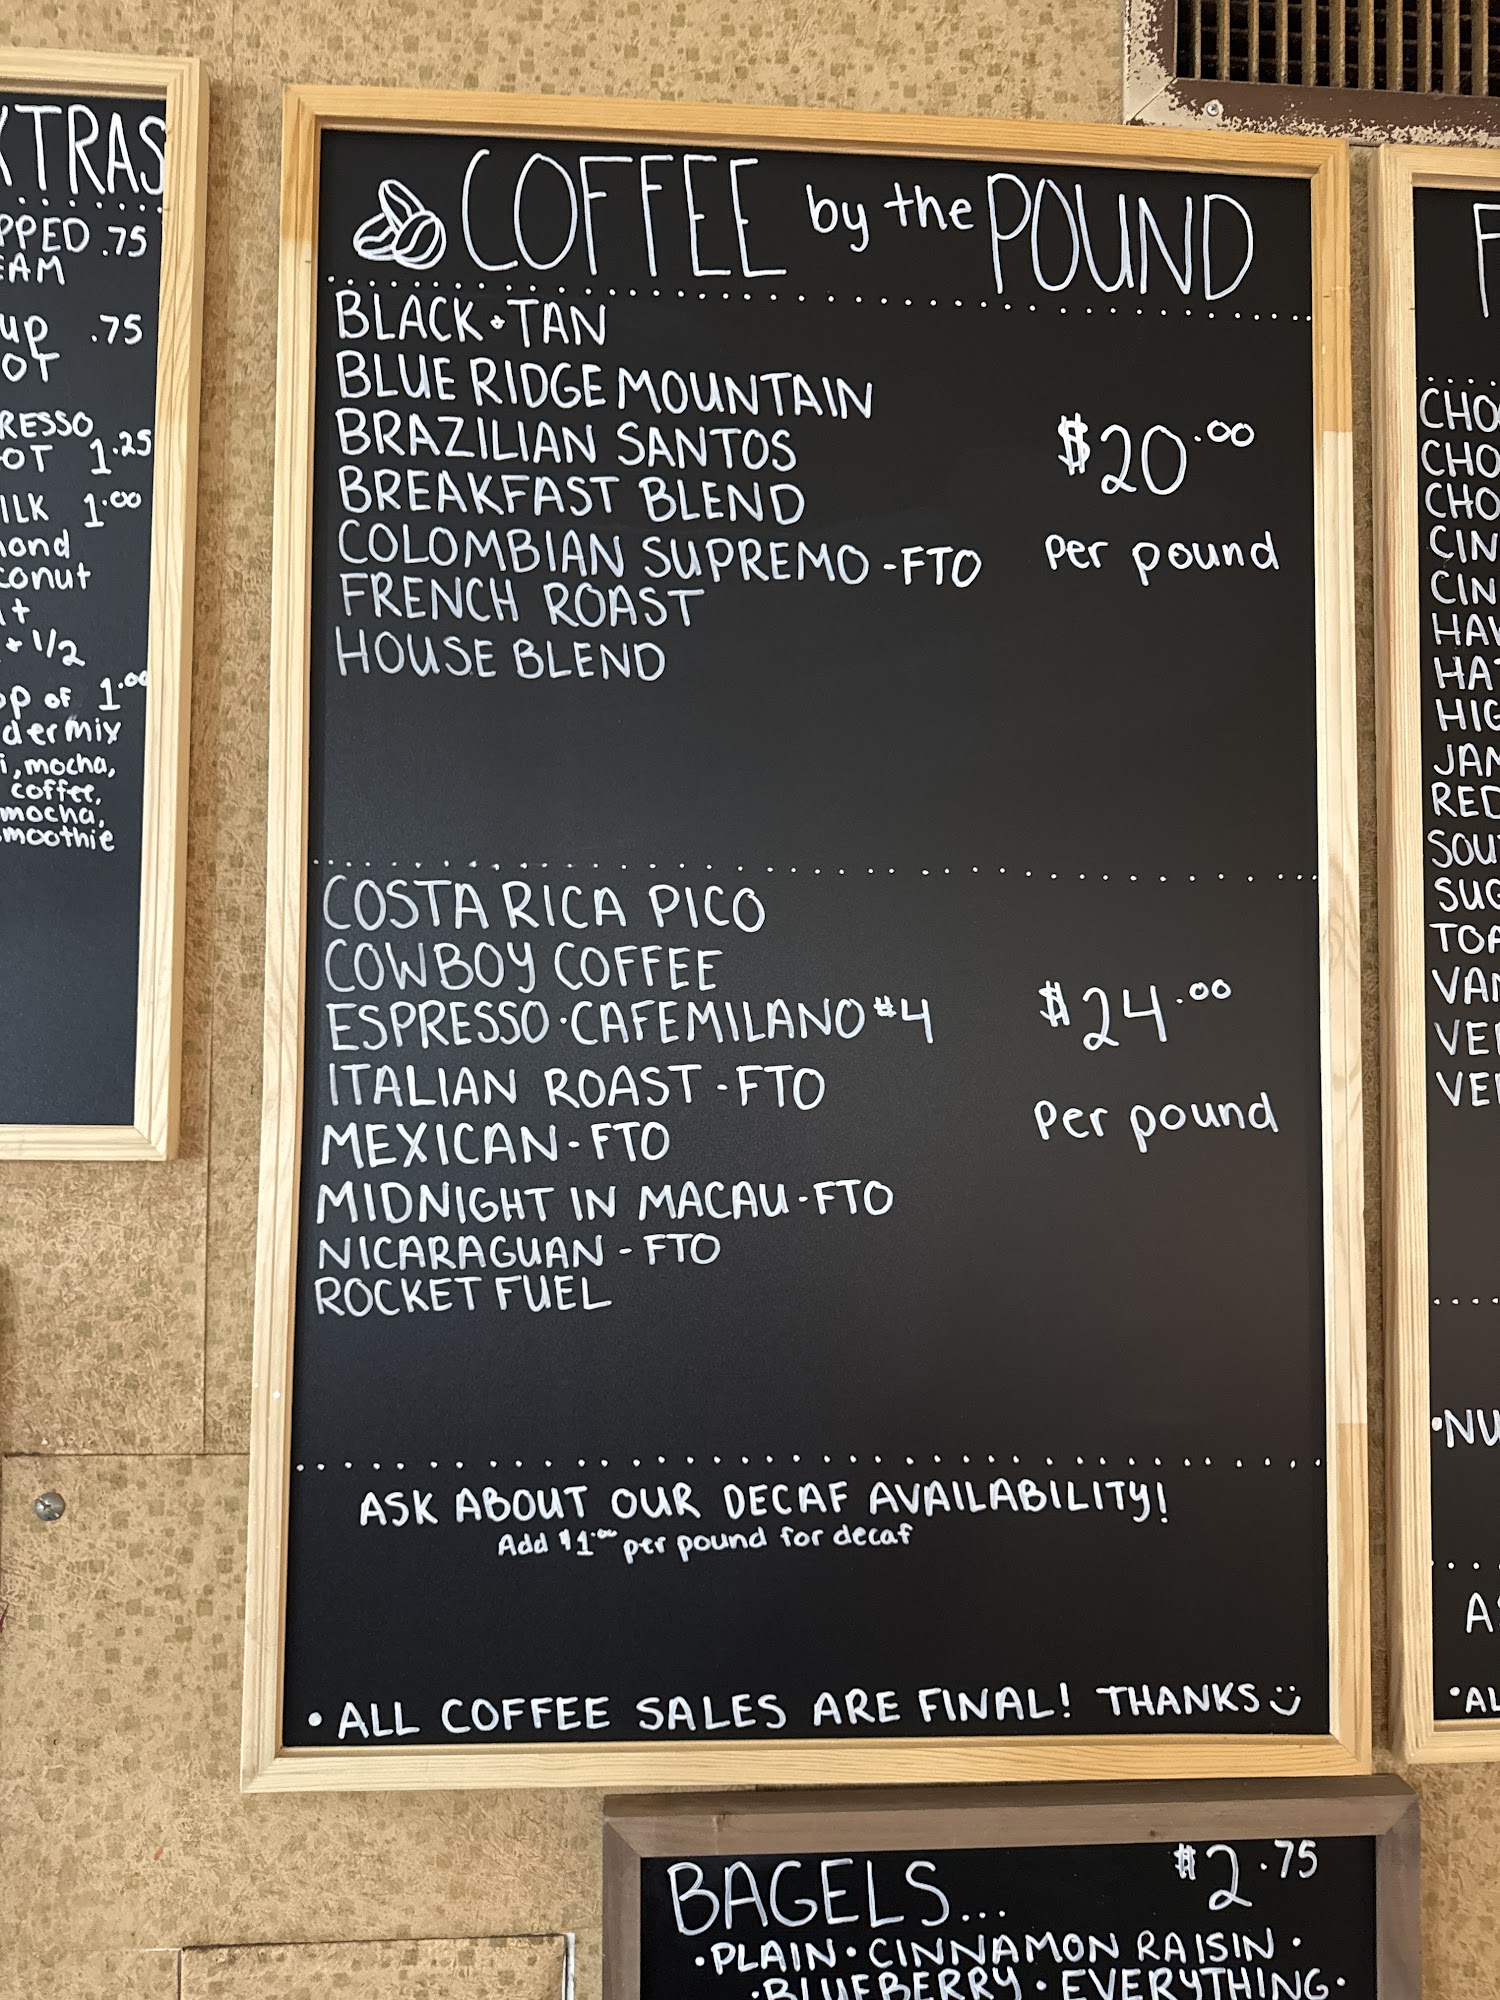 XTRAS
PPED .75
EAM
up .75
OT
RESSO
OT 1.25
ILK 1.00
mond
conut
1/2
op of 1.00
der mix
i, mocha,
coffee,
mocha,
smoothie
COFFEE by the POUND
BLACK & TAN
BLUE RIDGE MOUNTAIN
BRAZILIAN SANTOS
BREAKFAST BLEND
COLOMBIAN SUPREMO - FTO
FRENCH ROAST
HOUSE BLEND
$20.00
per pound
COSTA RICA PICO
COWBOY COFFEE
ESPRESSO · CAFEMILANO #4
ITALIAN ROAST - FTO
MEXICAN - FTO
MIDNIGHT IN MACAU - FTO
NICARAGUAN - FTO
ROCKET FUEL
$24.00
per pound
ASK ABOUT OUR DECAF AVAILABILITY!
Add $1.00 per pound for decaf
• ALL COFFEE SALES ARE FINAL! THANKS
CHO
CHO
CHO
CIN
CIN
HAW
HA
HIG
JAM
RED
SOU
SUG
TOA
VAN
VE
VE
•NU
A
•AL
BAGELS... $2.75
• PLAIN • CINNAMON RAISIN •
• BLUEBERRY • EVERYTHING •